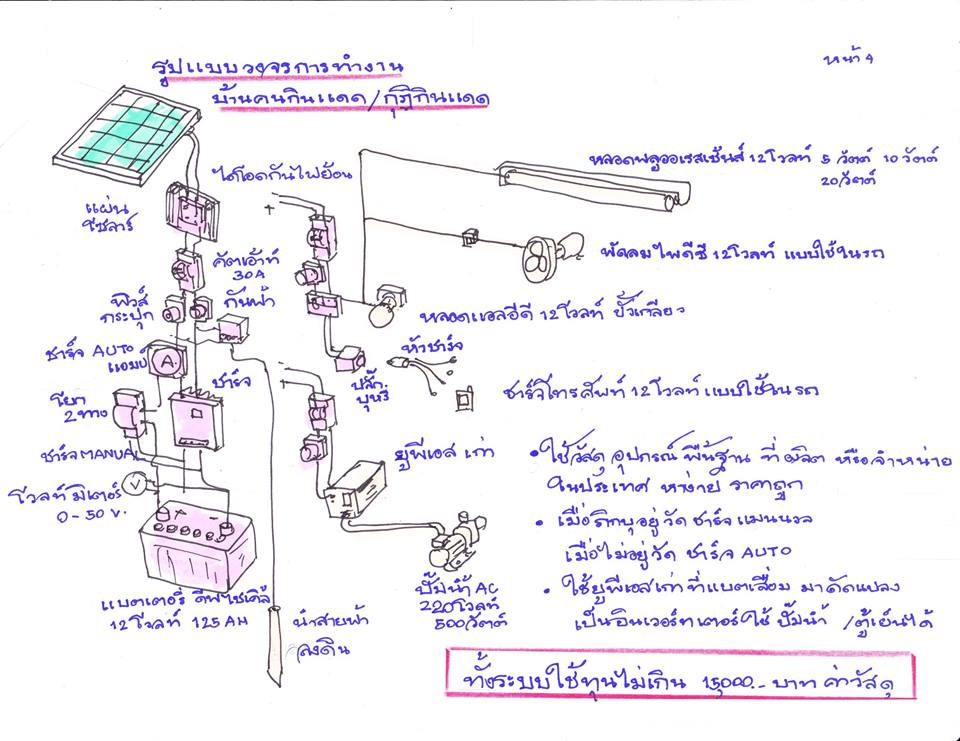 หน้า 4
รูปแบบวงจรการทำงาน
บ้านคนกินแดด/กุฏิกินแดด
แผ่น
โซลาร์
คัตเอ้าท์
30A
ฟิวส์
กระปุก
กันฟ้า
ชาร์จ AUTO
แอมป์
A
ชาร์จ
โยก
2ทาง
ชาร์จ MANUAL
โวลท์มิเตอร์
0-50 V.
V
+ -
แบตเตอรี่ ดีฟไซเคิ้ล
12โวลท์ 125 AH
นำสายฟ้า
ลงดิน
ไดโอดกันไฟย้อน
+
หลอดฟลูออเรสเซ้นส์ 12โวลท์ 5 วัตต์ 10 วัตต์
20วัตต์
พัดลมไฟดีซี 12โวลท์ แบบใช้ในรถ
หลอดแอลอีดี 12โวลท์ ขั้วเกลียว
หัวชาร์จ
ปลั๊ก
บุหรี่
ชาร์จโทรศัพท์ 12โวลท์ แบบใช้ในรถ
ยูพีเอส เก่า
ปั๊มน้ำ AC
220โวลท์
500วัตต์
•ใช้วัสดุ อุปกรณ์ พื้นฐาน ที่ ผลิต หรือจำหน่าย
ในประเทศ หาง่าย ราคาถูก
• เมื่อภิกษุอยู่วัด ชาร์จ แมนนวล
เมื่อไม่อยู่วัด ชาร์จ AUTO
• ใช้ยูพีเอสเก่าที่แบตเสื่อม มาดัดแปลง
เป็นอินเวอร์ทเตอร์ใช้ ปั๊มน้ำ /ตู้เย็นได้
ทั้งระบบใช้ทุนไม่เกิน 15,000.- บาท ค่าวัสดุ